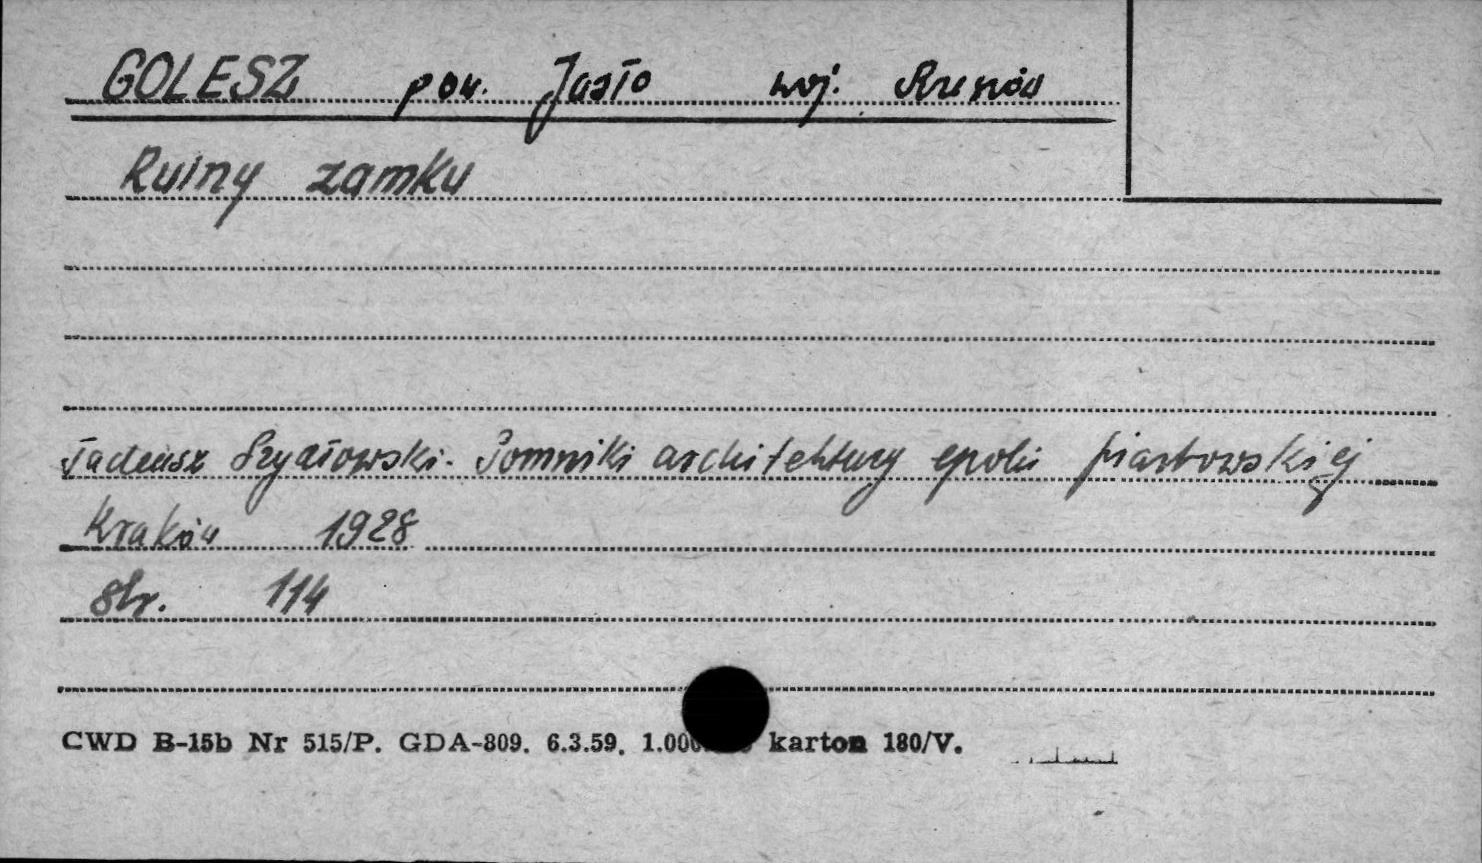 GOLESZ pow. Jasło woj. Rzeszów
Ruiny zamku
Tadeusz Szydłowski. Pomniki architektury epoki piastowskiej
Kraków 1928
str. 114
CWD B-15b Nr 515/P. GDA-809. 6.3.59. karton 180/V.